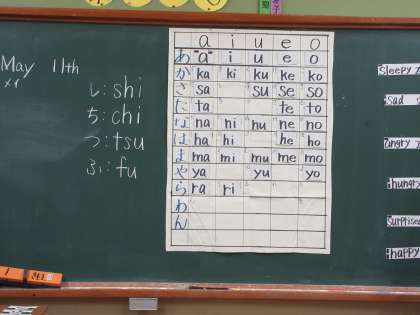 May 11th
し: shi
ち: chi
つ: tsu
ふ: fu
a i u e o
あ "a" i u e o
か ka ki ku ke ko
さ sa su se so
た ta te to
な na ni nu ne no
は ha hi he ho
ま ma mi mu me mo
や ya yu yo
ら ra ri
わ
ん
sleepy
sad
angry
hungry
surprised
happy